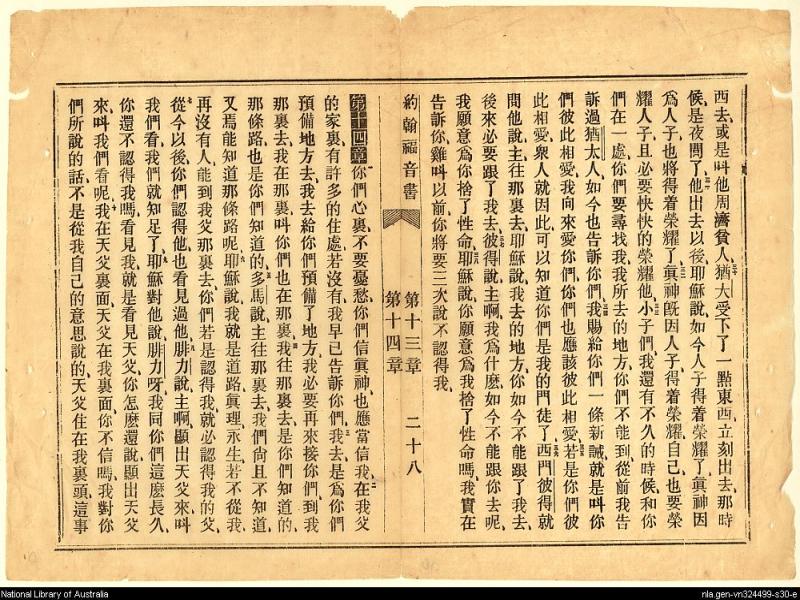 西去、或是叫他周濟貧人、猶大受下了一點東西、立刻出去、那時
候是夜間了、他出去以後、耶穌說、如今人子得着榮耀了、眞神因
爲人子也將得着榮耀了、眞神旣因人子得着榮耀、自己也要榮
耀人子、且必要快快的榮耀他、小子們、我還有不久的時候和你
們在一處、你們要尋找我、我所去的地方、你們不能到、從前我告
訴過猶太人、如今也告訴你們、我賜給你們一條新誡、就是叫你
們彼此相愛、我向來愛你們、你們也應該彼此相愛、若是你們彼
此相愛、衆人就因此可以知道你們是我的門徒了、西門彼得就
問他說、主往那裏去、耶穌說、我去的地方、你如今不能跟了我去、
後來必要跟了我去、彼得說、主啊、我爲什麽如今不能跟你去呢、
我願意爲你捨了性命、耶穌說、你願意爲我捨了性命嗎、我實在
告訴你、雞叫以前、你將要三次說不認得我、
約翰福音書 第十三章 第十四章 二十八
第十四章 你們心裏不要憂愁、你們信眞神、也應當信我、在我父
的家裏有許多的住處、若沒有、我早已告訴你們、我去是爲你們
預備地方去、我去給你們預備了地方、我必要再來接你們到我
那裏去、我在那裏、叫你們也在那裏、我往那裏去、是你們知道的、
那條路也是你們知道的、多馬說、主往那裏去、我們尙且不知道、
又焉能知道那條路呢、耶穌說、我就是道路眞理永生、若不從我、
再沒有人能到我父那裏去、你們若是認得我、就必認得我的父、
從今以後、你們認得他、也看見過他、腓力說、主啊、顯出天父來叫
我們看、我們就知足了、耶穌對他說、腓力呀、我同你們這麽長久、
你還不認得我嗎、看見我、就是看見天父、你怎麽還說顯出天父
來叫我們看呢、我在天父裏面、天父在我裏面、你不信嗎、我對你
們所說的話、不是從我自己的意思說的、天父住在我裏頭、這事
National Library of Australia
nla.gen-vn324499-s30-e